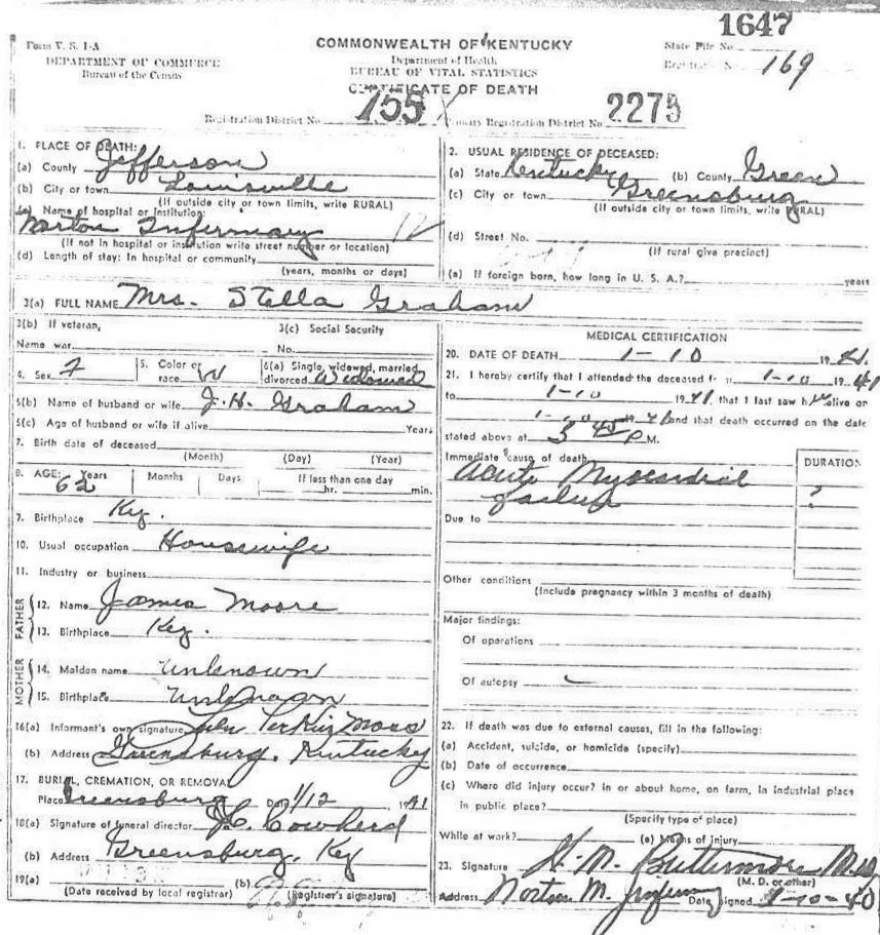 1647
Form V. S. 1-A
COMMONWEALTH OF KENTUCKY
State File No.
DEPARTMENT OF COMMERCE
Department of Health
Bureau of the Census
BUREAU OF VITAL STATISTICS
169
CERTIFICATE OF DEATH
Registration District No. 755 Primary Registration District No. 2275
1. PLACE OF DEATH:
(a) County Jefferson
(b) City or town Louisville
(If outside city or town limits, write RURAL)
(c) Name of hospital or Institution:
Norton Infirmary
(If not in hospital or institution write street number or location)
(d) Length of stay: In hospital or community
(years, months or days)
2. USUAL RESIDENCE OF DECEASED:
(a) State Kentucky (b) County Green
(c) City or town Greensburg
(If outside city or town limits, write RURAL)
(d) Street No.
(If rural give precinct)
(e) If foreign born, how long in U. S. A.? years
3(a) FULL NAME Mrs. Stella Graham
3(b) If veteran,
Name war
3(c) Social Security
No.
4. Sex F
5. Color or race W
6(a) Single, widowed, married, divorced Widowed
6(b) Name of husband or wife J. H. Graham
6(c) Age of husband or wife if alive Years
7. Birth date of deceased
(Month) (Day) (Year)
8. AGE: Years Months Days If less than one day
62 hr. min.
9. Birthplace Ky.
10. Usual occupation Housewife
11. Industry or business
FATHER
12. Name James Moore
13. Birthplace Ky.
MOTHER
14. Maiden name Unknown
15. Birthplace Unknown
16(a) Informant's own signature Perkins Moss
(b) Address Greensburg, Kentucky
17. BURIAL, CREMATION, OR REMOVAL
Place Greensburg Date 1/12, 1941
18(a) Signature of funeral director Cowherd
(b) Address Greensburg, Ky
19(a) (b)
(Date received by local registrar) (Registrar's signature)
MEDICAL CERTIFICATION
20. DATE OF DEATH 1-10 1941
21. I hereby certify that I attended the deceased from 1-10, 1941
to 1-10 1941, that I last saw her alive on
1-10 1941 and that death occurred on the date
stated above at 3 45 P.M.
Immediate cause of death
DURATION
Acute Myocardial
failure
?
Due to
Other conditions
(Include pregnancy within 3 months of death)
Major findings:
Of operations
Of autopsy
22. If death was due to external causes, fill in the following:
(a) Accident, suicide, or homicide (specify)
(b) Date of occurrence
(c) Where did injury occur? in or about home, on farm, in industrial place
in public place?
(Specify type of place)
While at work? (e) Means of injury
23. Signature H. M. Buttermore M.D.
(M. D. or other)
Address Norton M. Infirmary Date signed 1-10-40